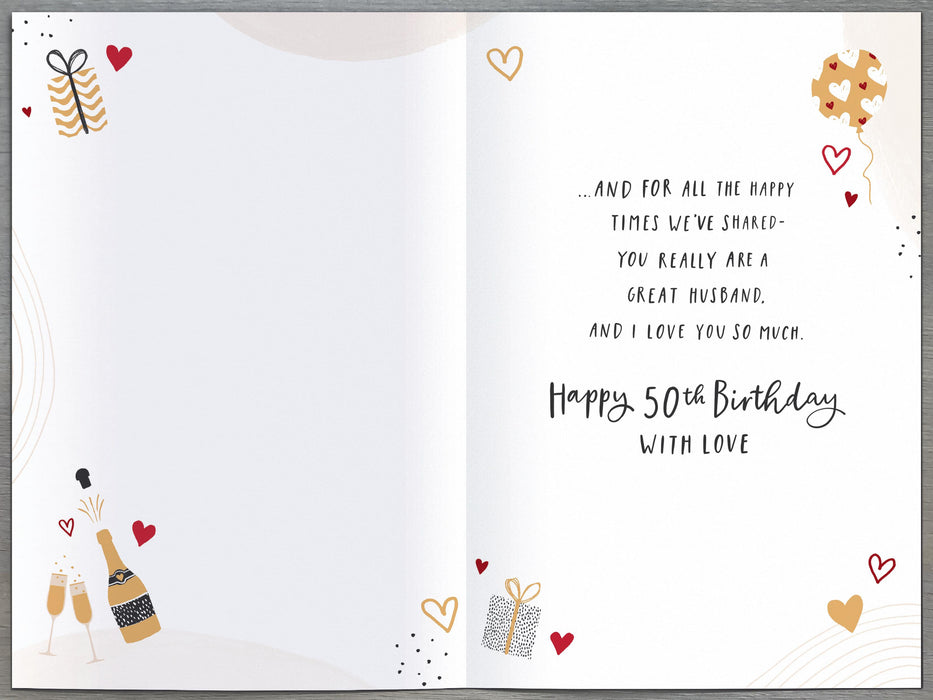 ...AND FOR ALL THE HAPPY
TIMES WE'VE SHARED-
YOU REALLY ARE A
GREAT HUSBAND,
AND I LOVE YOU SO MUCH.
Happy 50th Birthday
WITH LOVE